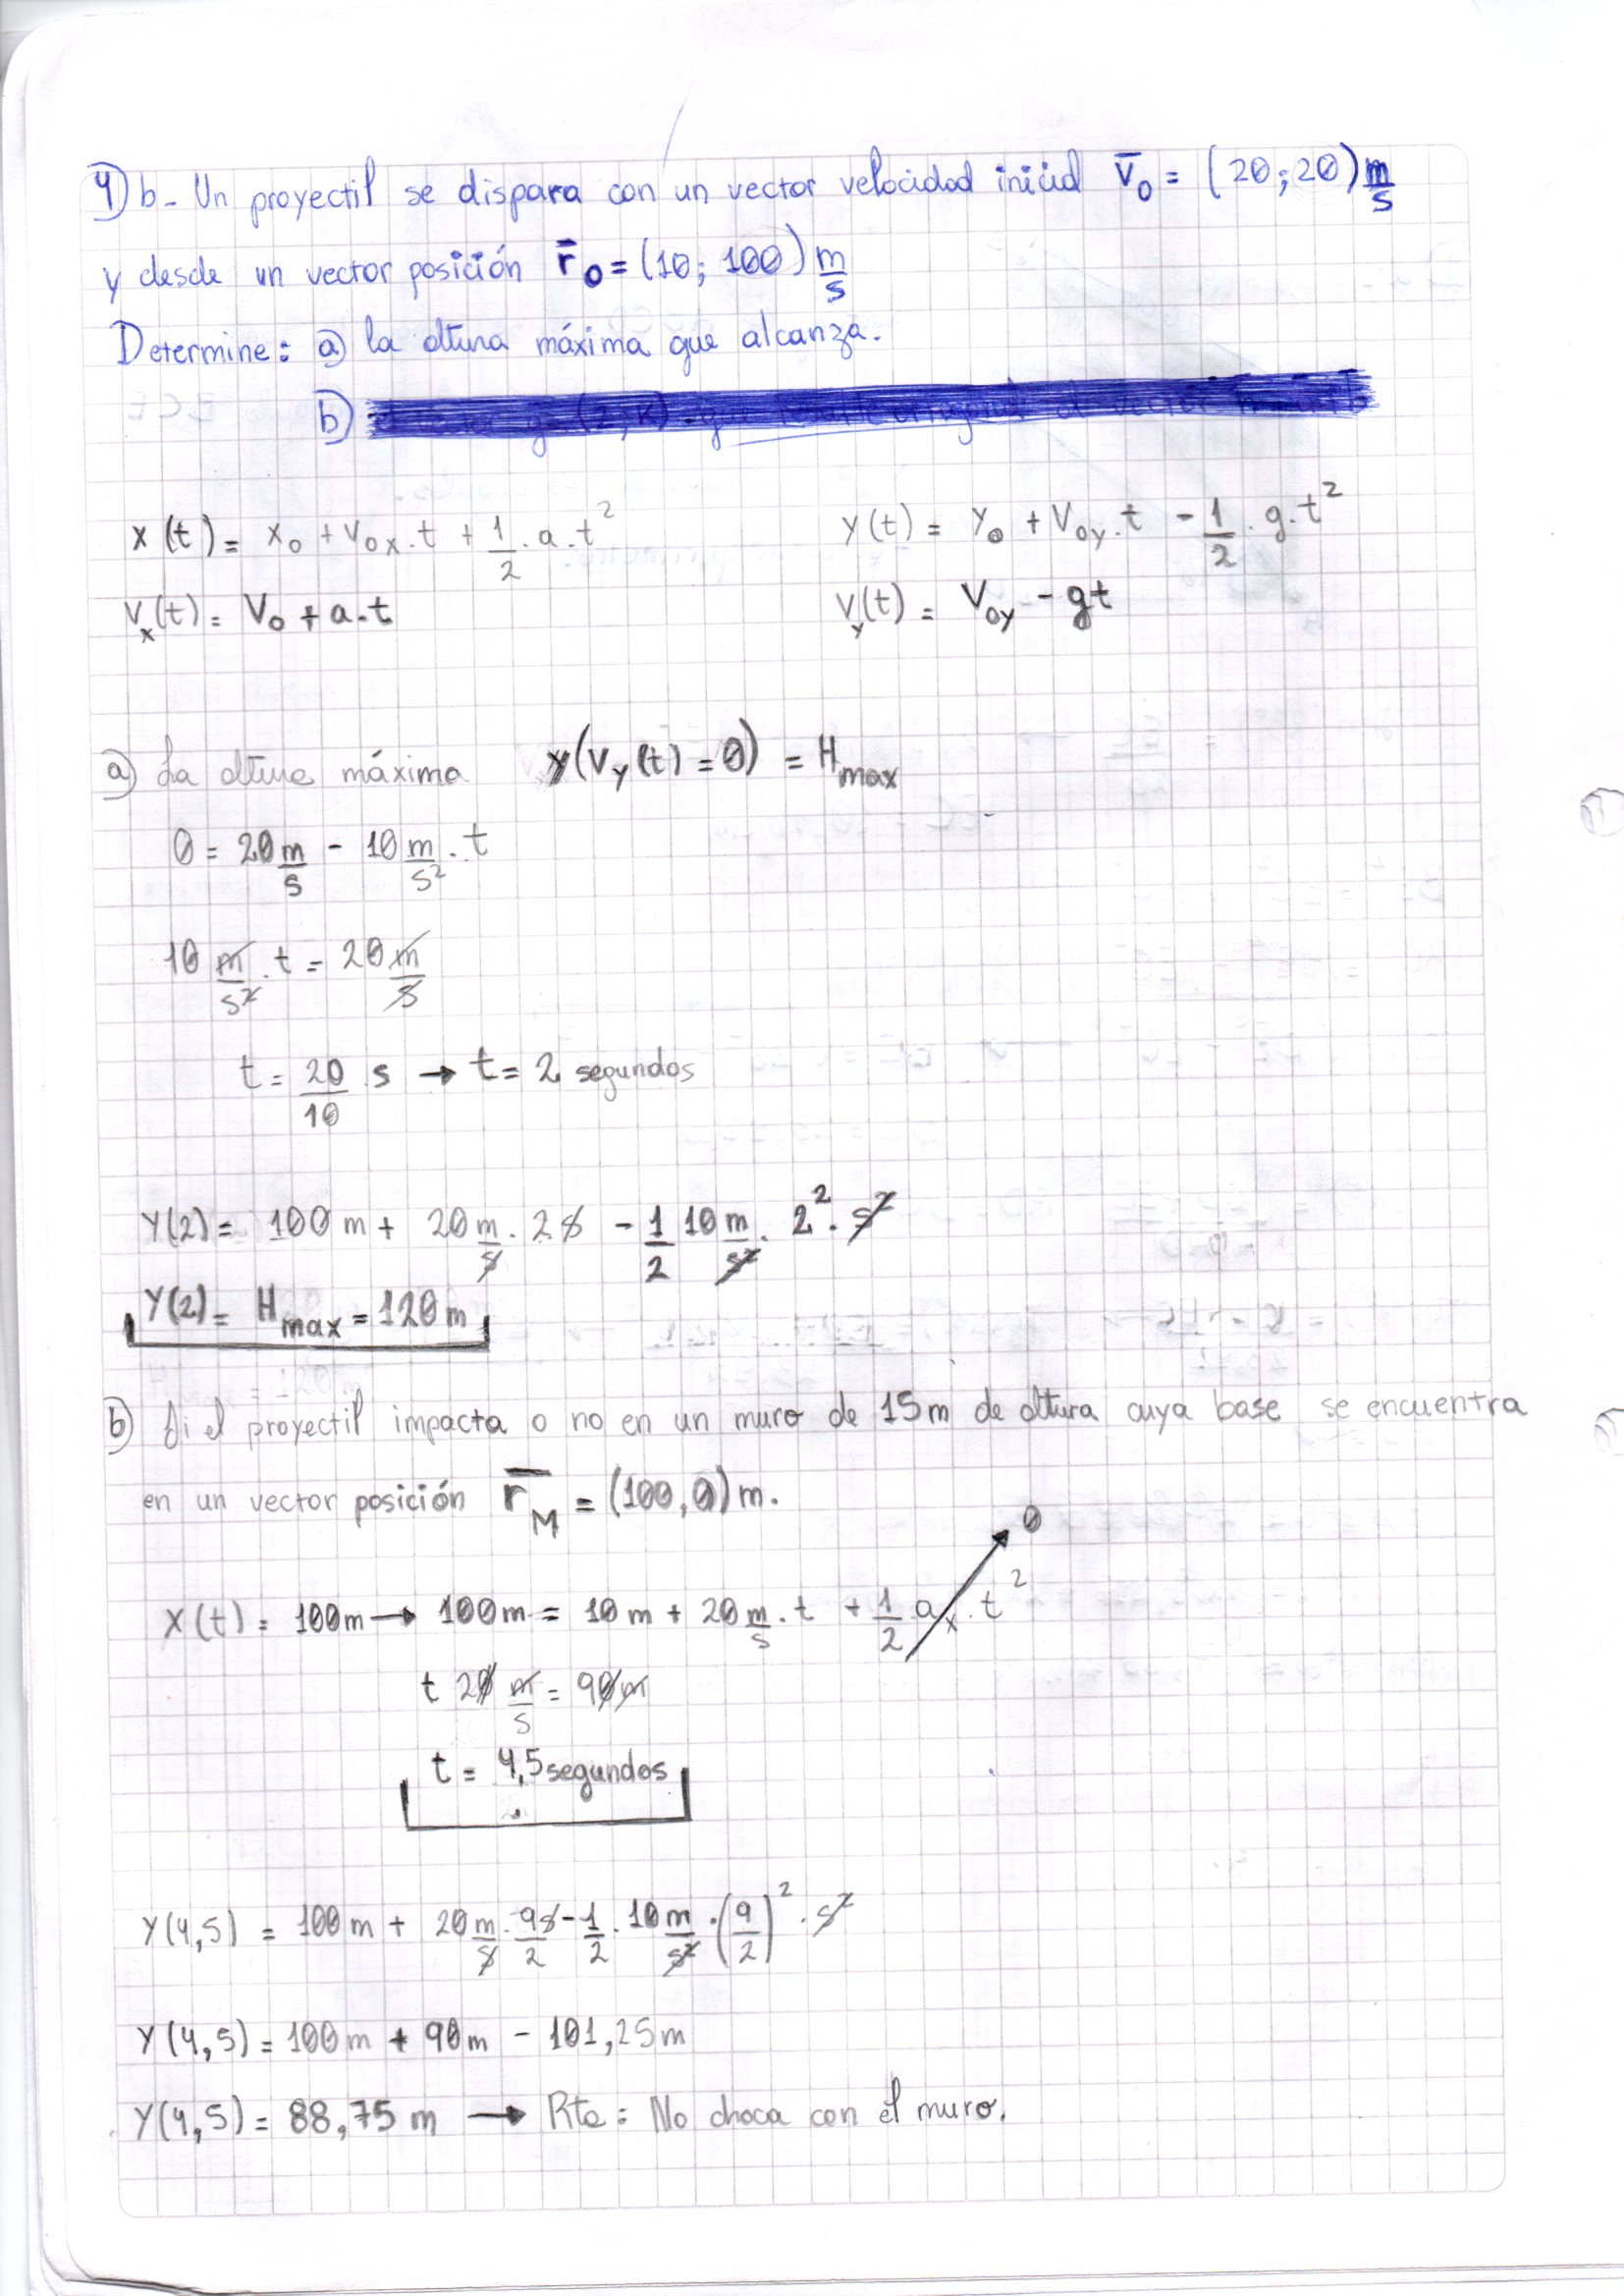 4) b- Un proyectil se dispara con un vector velocidad inicial v̄₀ = (20; 20) m/s
y desde un vector posición r̄₀ = (10; 100) m/s
Determine: a) la altura máxima que alcanza.
b)
x(t) = x₀ + V₀ₓ . t + 1/2 . a . t²
y(t) = y₀ + V₀y . t - 1/2 . g . t²
Vₓ(t) = V₀ + a . t
Vy(t) = V₀y - gt
a) La altura máxima y(Vy(t) = 0) = Hmax
0 = 20 m/s - 10 m/s² . t
10 m/s² . t = 20 m/s
t = 20/10 s → t = 2 segundos
Y(2) = 100 m + 20 m/s . 2 s - 1/2 10 m/s² . 2² . s²
Y(2) = Hmax = 120 m
b) Si el proyectil impacta o no en un muro de 15 m de altura cuya base se encuentra
en un vector posición r̄M = (100, 0) m.
0
X(t) = 100 m → 100 m = 10 m + 20 m/s . t + 1/2 aₓ . t²
t 20 m/s = 90 m
t = 4,5 segundos
Y(4,5) = 100 m + 20 m/s . 9/2 s - 1/2 . 10 m/s² . (9/2)² . s²
Y(4,5) = 100 m + 90 m - 101,25 m
Y(4,5) = 88,75 m → Rta: No choca con el muro.